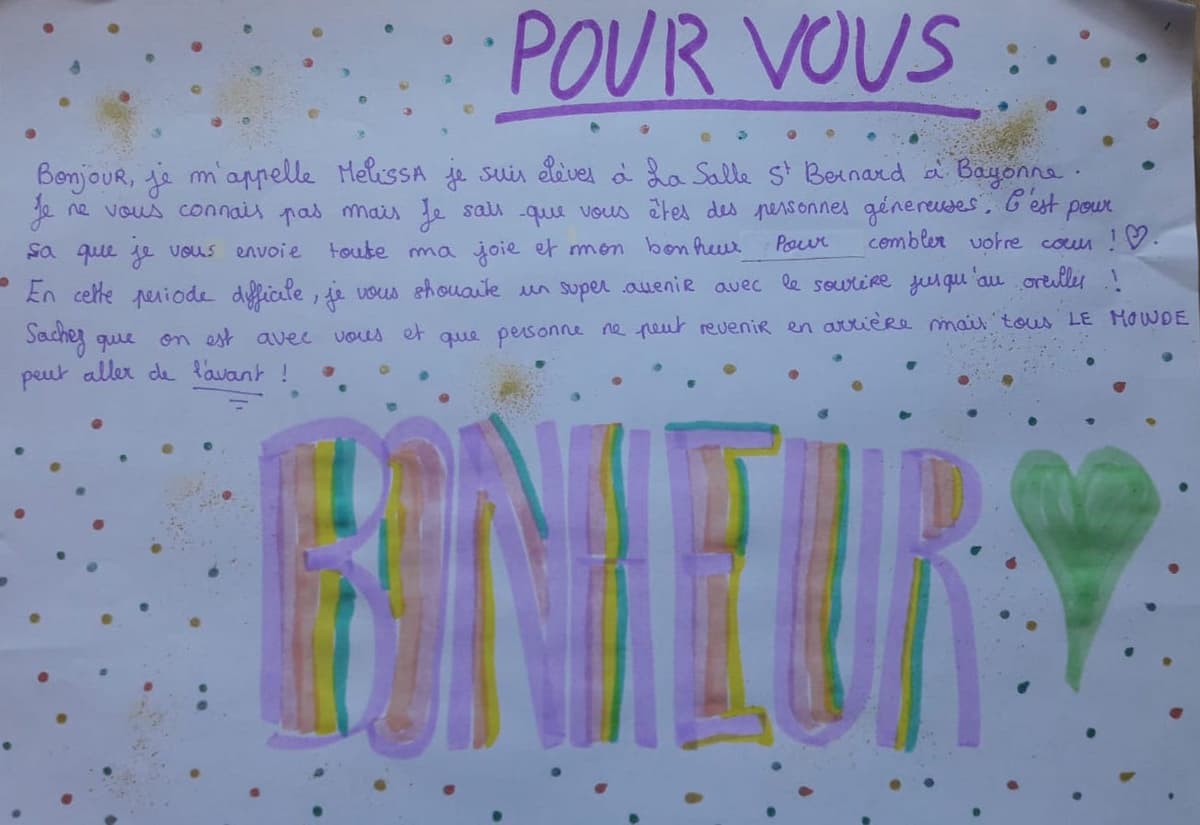 POUR VOUS
Bonjour, je m'appelle MelissA je suis élèves à La Salle St Bernard à Bayonne.
Je ne vous connais pas mais Je sais que vous êtes des personnes génereuses. C'est pour
sa que je vous envoie toute ma joie et mon bonheur Pour combler votre cœur ! ♡.
En cette periode difficile, je vous shouaite un super avenir avec le sourire jusqu'au oreilles !
Sachez que on est avec vous et que personne ne peut revenir en arrière mais tous LE MONDE
peut aller de l'avant !
BONHEUR